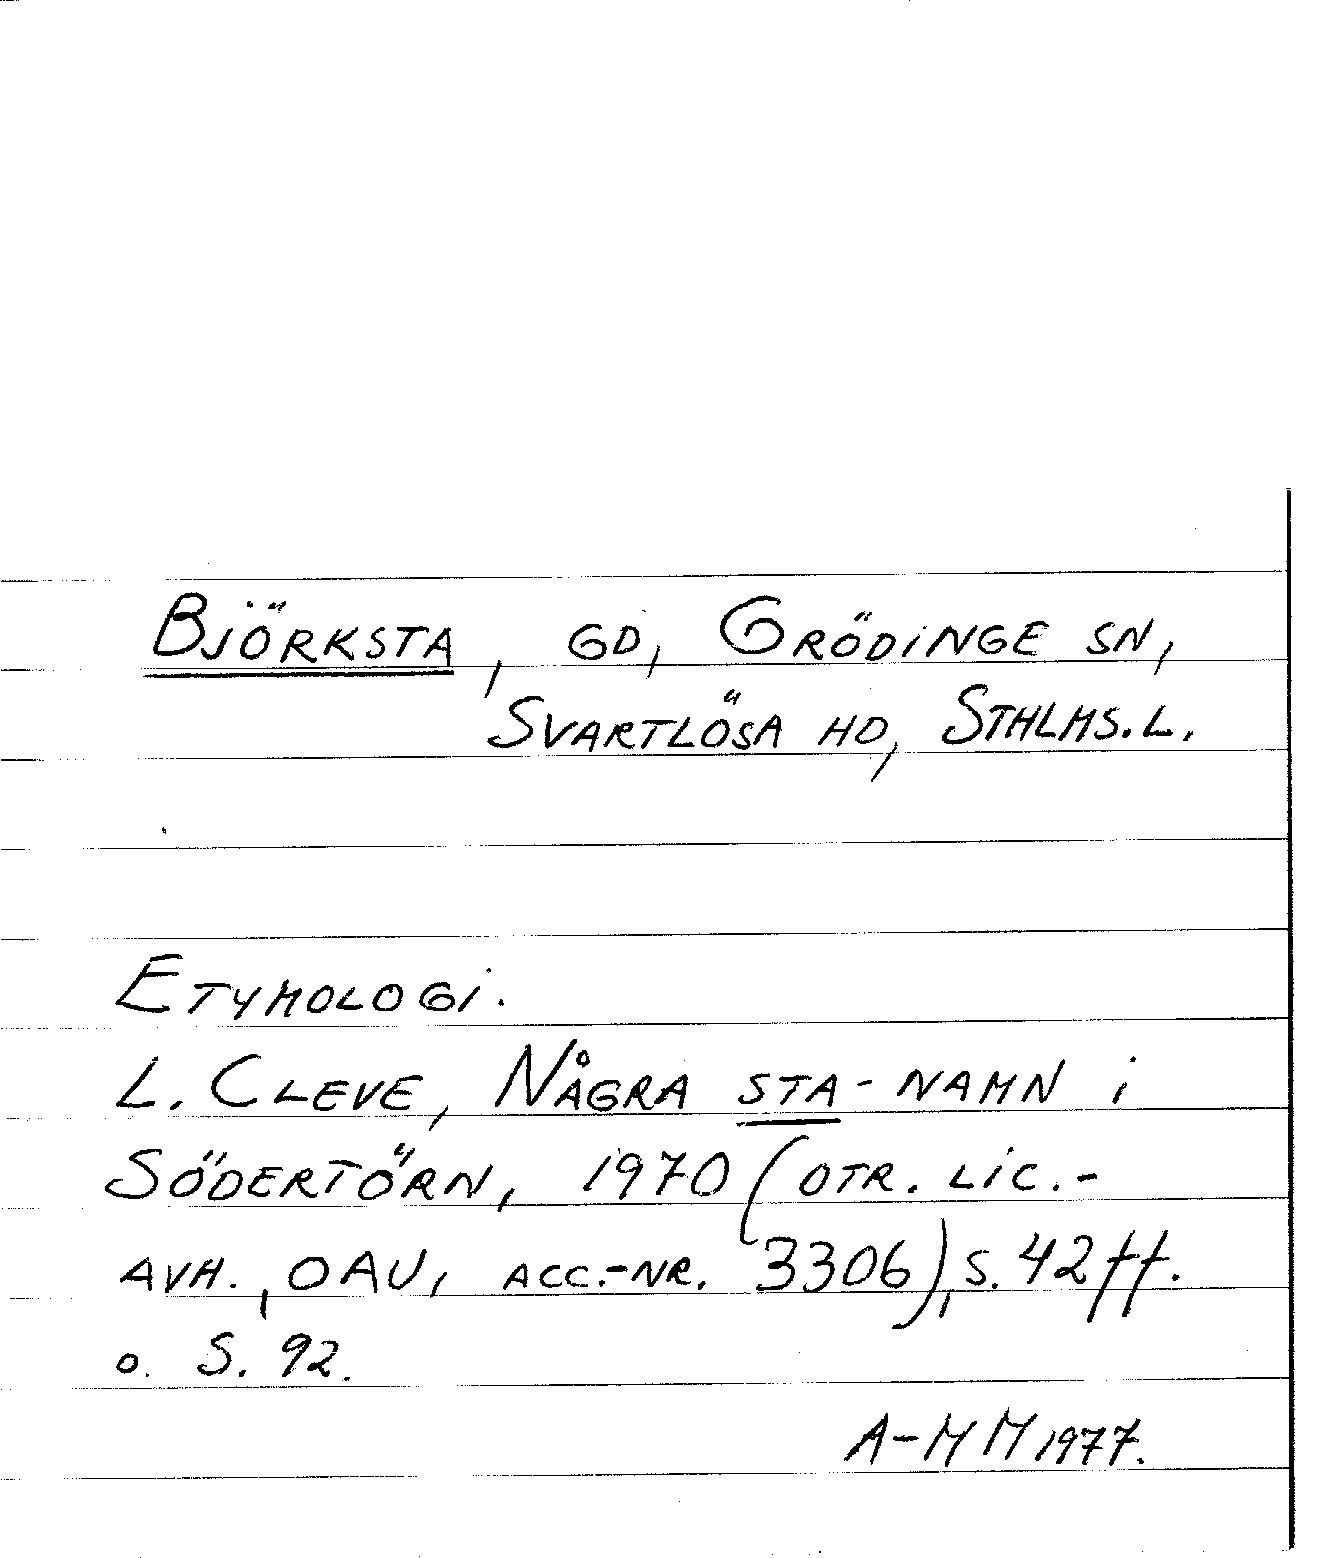 BJÖRKSTA, GD, GRÖDINGE SN,
SVARTLÖSA HD, STHLMS.L.
ETYMOLOGI.
L. CLEVE, NÅGRA STA-NAMN i
SÖDERTÖRN, 1970 (OTR. LIC.-
AVH., OAU, ACC.-NR. 3306), S. 42 ff.
o. S. 92.
A-MM 1977.